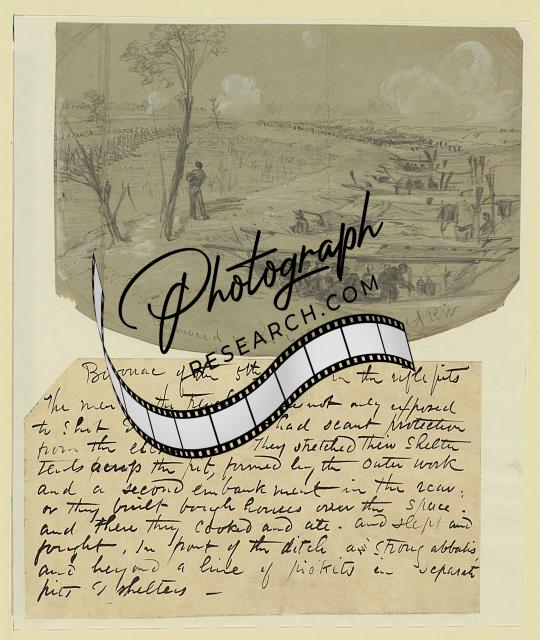 Photograph
RESEARCH.COM
Bivouac of the 5th in the rifle pits
The men the not only exposed
to shot had scant protection
from the They stretched their shelter
tents across the pit, formed by the outer work
and a second embankment in the rear;
or they built bough houses over the space.
and there they cooked and ate. and slept and
fought. In front of the ditch a strong abbatis
and beyond a line of pickets in separate
pits & shelters —